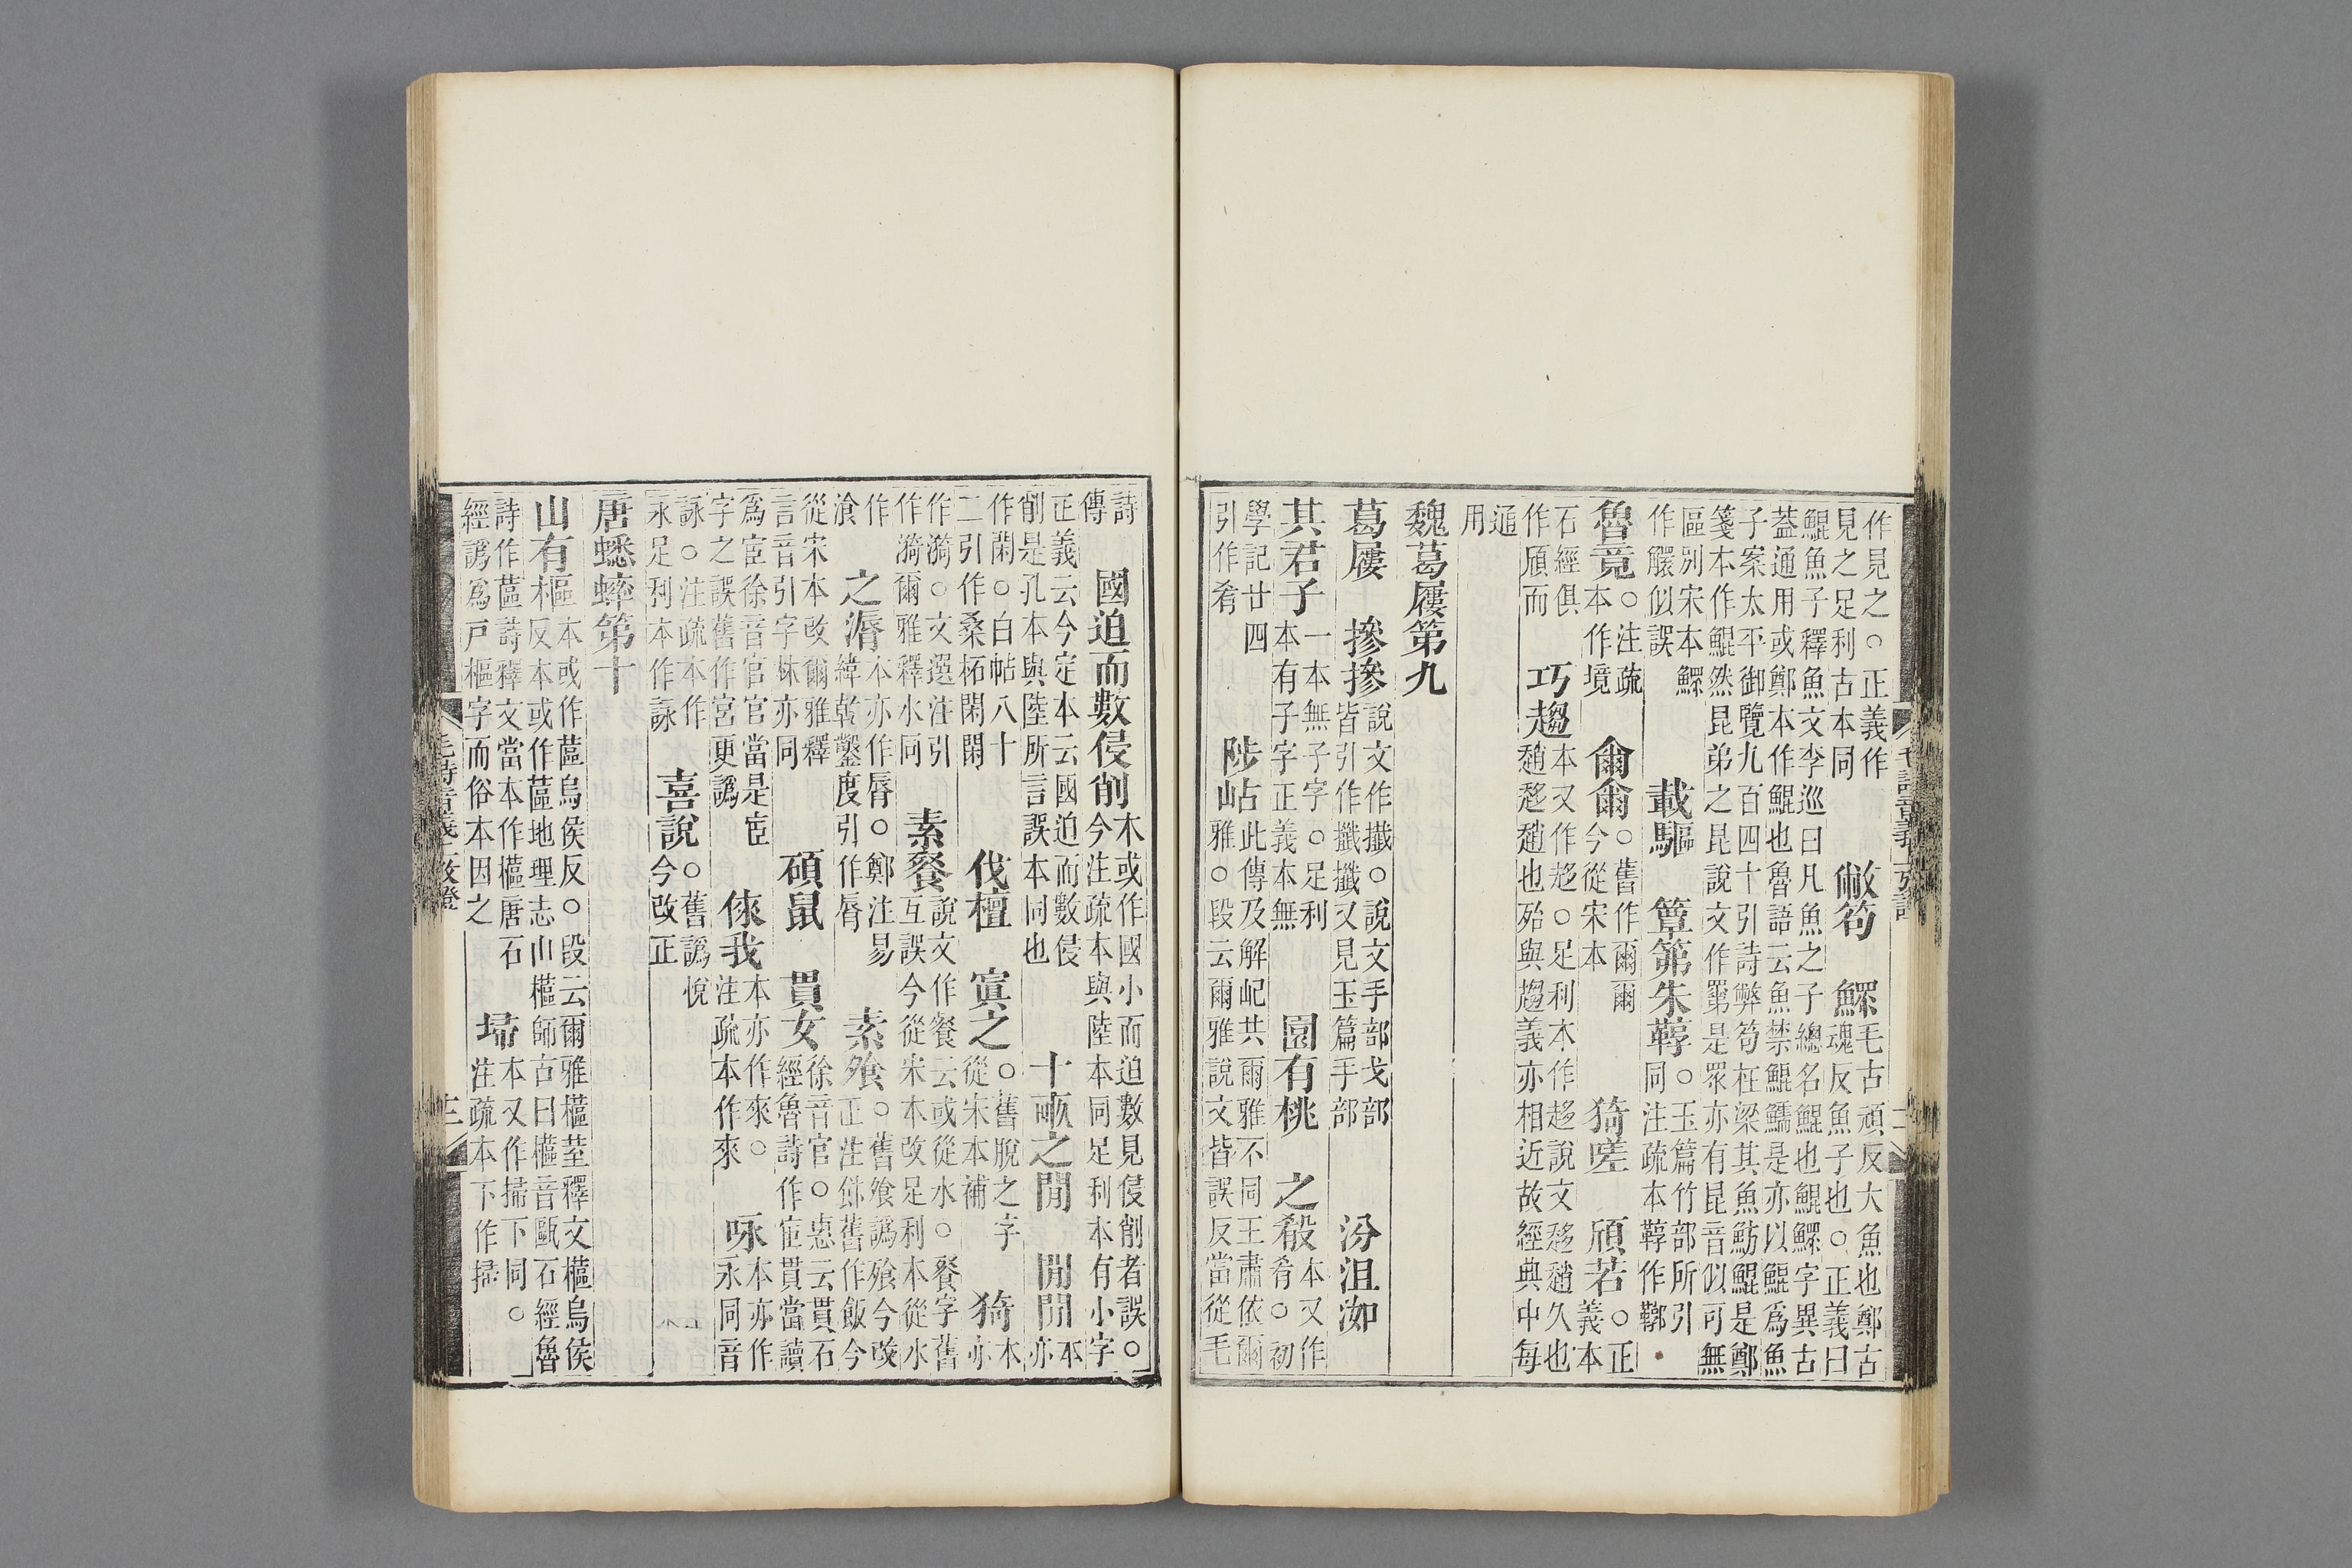 作見之○正義作
見之足利古本同
敝笱
鰥
毛古頑反大魚也鄭古
魂反魚子也○正義曰
鯤魚子釋魚文李巡曰凡魚之子總名鯤也鯤鰥字異古
葢通用或鄭本作鯤也魯語云魚禁鯤鱬是亦以鯤爲魚
子案太平御覽九百四十引詩弊笱在梁其魚魴鯤是鄭
箋本作鯤然昆弟之昆說文作罤是眾亦有昆音似可無
區別宋本鰥
作鰥似誤
載驅
簟笰朱鞹
○玉篇竹部所引
同注疏本鞹作鞹
魯竟
○注疏
本作境
爾爾
○舊作爾爾
今從宋本
猗嗟
頎若
○正
義本
石經俱
作頎而
巧趨
本又作趍○足利本作趍說文趍趙久也
趙趍趙也殆與趨義亦相近故經典中每
通
用
魏葛屨第九
葛屨
摻摻
說文作攕○說文手部戈部
皆引作攕攕又見玉篇手部
汾沮洳
其君子
一本無子字○足利
本有子字正義本無
園有桃
之殽
本又作
肴○初
學記廿四
引作肴
陟岵
此傳及解屺共爾雅不同王肅依爾
雅○段云爾雅說文皆誤反當從毛
詩
傳
國迫而數侵削
本或作國小而迫數見侵削者誤○
今注疏本與陸本同足利本有小字
正義云今定本云國迫而數侵
削是孔本與陸所言誤本同也
十畝之閒
閒閒
本
亦
作閑○白帖八十
二引作桑柘閑閑
伐檀
寘之
○舊脫之字
從宋本補
猗
本
亦
作漪○文選注引
作漪爾雅釋水同
素餐
說文作餐云或從水○餐字舊
互誤今從宋本改足利本從水
作
湌
之漘
本亦作脣○鄭注易
緯乾鑿度引作脣
素飧
○舊飧譌飱今改
正注𩚬舊作飯今
從宋本改爾雅釋
言音引字林亦同
碩鼠
貫女
徐音官○惠云貫石
經魯詩作宦貫當讀
爲宦徐音官官當是宦
字之誤舊作宮更譌
徠我
本亦作來○
注疏本作來
咏
本亦作
永同音
詠○注疏本作
永足利本作詠
喜說
○舊譌悅
今改正
唐蟋蟀第十
山有樞
本或作蓲烏侯反○段云爾雅樞荎釋文樞烏侯
反本或作蓲地理志山樞師古曰樞音甌石經魯
詩作蓲詩釋文當本作樞唐石
經譌爲戸樞字而俗本因之
埽
本又作掃下同○
注疏本下作掃